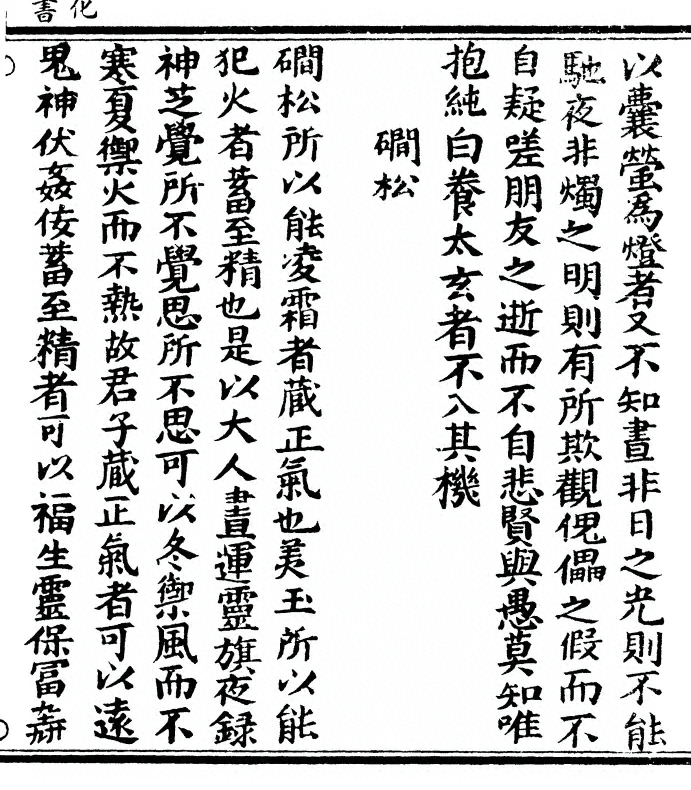 化書
以囊螢爲燈者又不知晝非日之光則不能
馳夜非燭之明則有所欺觀傀儡之假而不
自疑嗟朋友之逝而不自悲賢與愚莫知唯
抱純白養太玄者不入其機
磵松
磵松所以能凌霜者蔵正氣也美玉所以能
犯火者蓄至精也是以大人晝運靈旗夜録
神芝覺所不覺思所不思可以冬禦風而不
寒夏禦火而不熱故君子蔵正氣者可以遠
鬼神伏姦佞蓄至精者可以福生靈保富壽